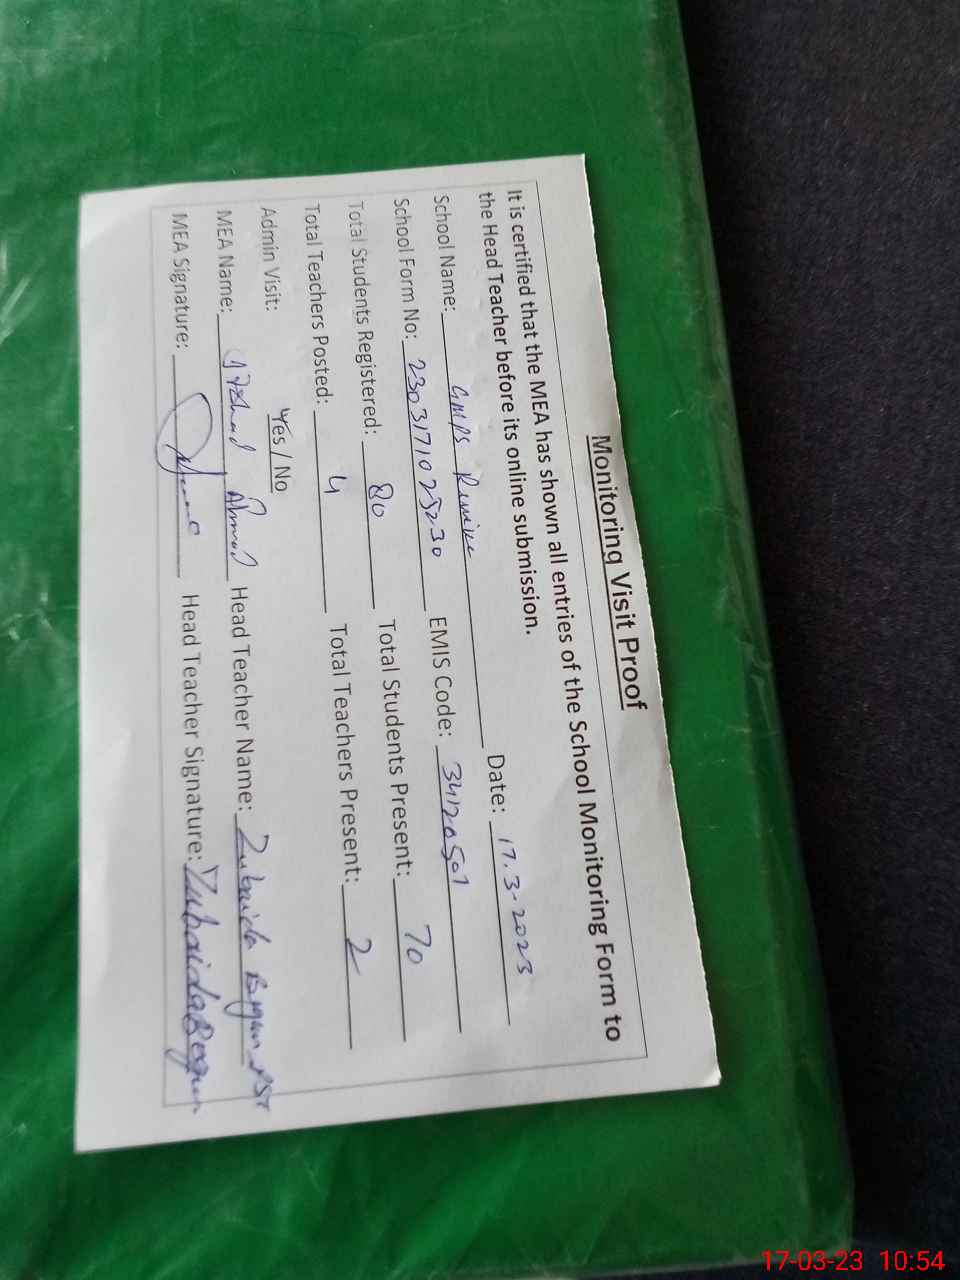 Monitoring Visit Proof
It is certified that the MEA has shown all entries of the School Monitoring Form to
the Head Teacher before its online submission.
School Name: GMPS Date: 17.3-2023
School Form No: 2303171025230 EMIS Code: 34120501
Total Students Registered: 80 Total Students Present: 70
Total Teachers Posted: 4 Total Teachers Present: 2
Admin Visit: Yes / No
MEA Name: Ahmad Head Teacher Name: Zubaida Begum PST
MEA Signature: Head Teacher Signature: Zubaida Begum
17-03-23 10:54